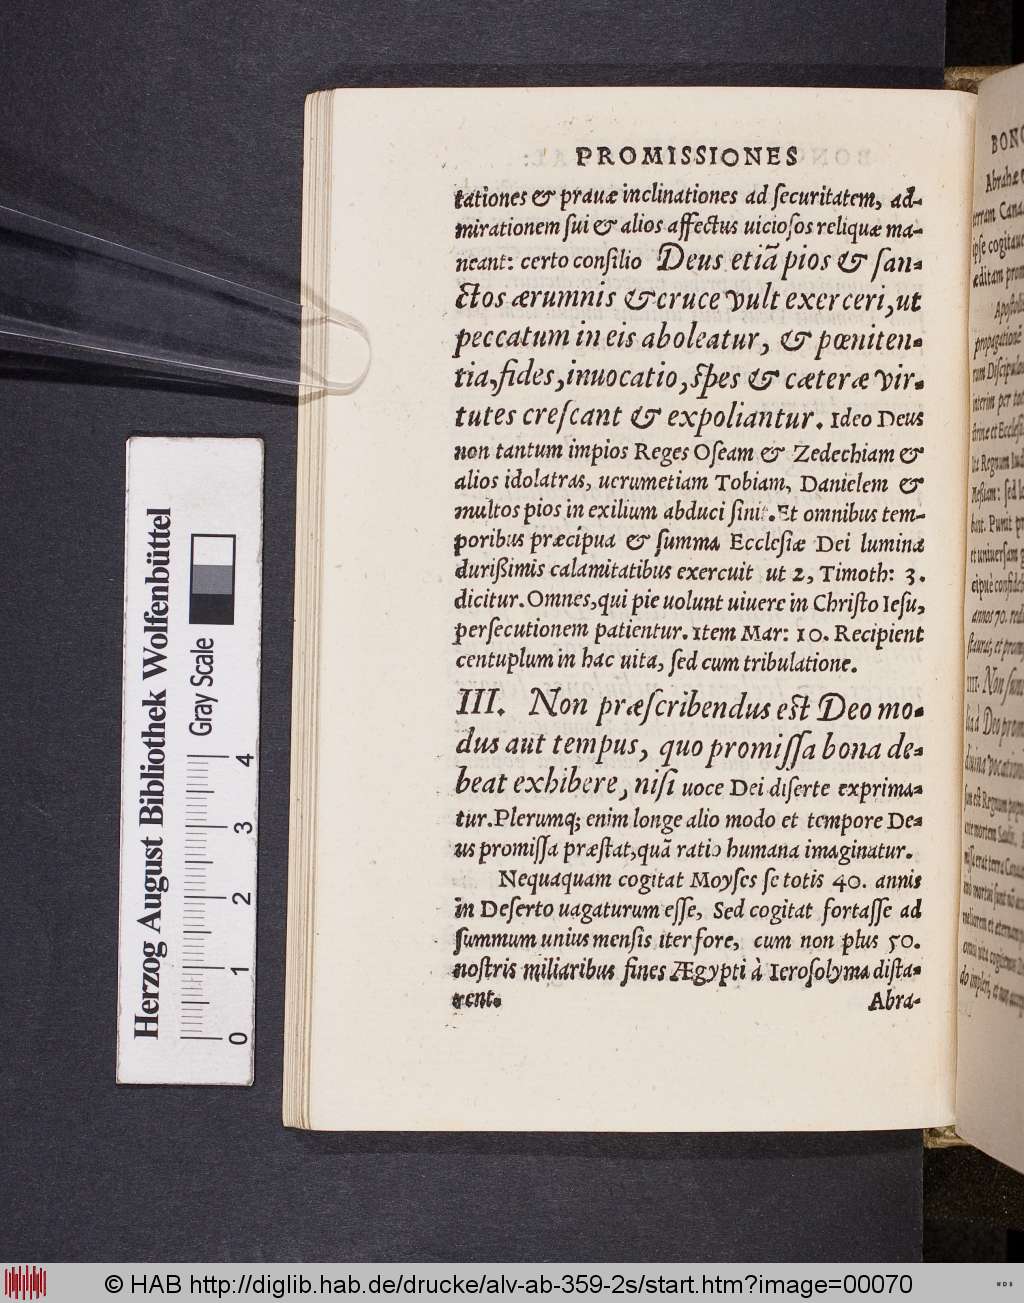 PROMISSIONES
tationes & prauæ inclinationes ad ſecuritatem, ad-
mirationem ſui & alios affectus uicioſos reliquæ ma-
neant: certo conſilio Deus etiã pios & ſan-
ctos ærumnis & cruce vult exerceri, ut
peccatum in eis aboleatur, & pœniten-
tia, fides, inuocatio, ſpes & cæteræ vir-
tutes creſcant & expoliantur. Ideo Deus
non tantum impios Reges Oſeam & Zedechiam &
alios idolatras, uerumetiam Tobiam, Danielem &
multos pios in exilium abduci ſinit. Et omnibus tem-
poribus præcipua & ſumma Eccleſiæ Dei lumina
durißimis calamitatibus exercuit ut 2, Timoth: 3.
dicitur. Omnes, qui pie uolunt uiuere in Chriſto Ieſu,
perſecutionem patientur. Item Mar: 10. Recipient
centuplum in hac uita, ſed cum tribulatione.
III. Non præſcribendus est Deo mo-
dus aut tempus, quo promiſſa bona de-
beat exhibere, niſi uoce Dei diſerte exprima-
tur. Plerumq; enim longe alio modo et tempore De-
us promiſſa præſtat, quã ratio humana imaginatur.
Nequaquam cogitat Moyſes ſe totis 40. annis
in Deſerto uagaturum eſſe, Sed cogitat fortaſſe ad
ſummum unius menſis iter fore, cum non plus 50.
noſtris miliaribus fines Ægypti à Ieroſolyma diſta-
rent.
Abra-
BONO
Abrahæ
erram Cana
ipſe cogitaue
æditam prom
Apoſtoli
propagationē
rum Diſcipulo
interim per to
Herzog August Bibliothek Wolfenbüttel
Gray Scale
0 1 2 3 4
© HAB http://diglib.hab.de/drucke/alv-ab-359-2s/start.htm?image=00070